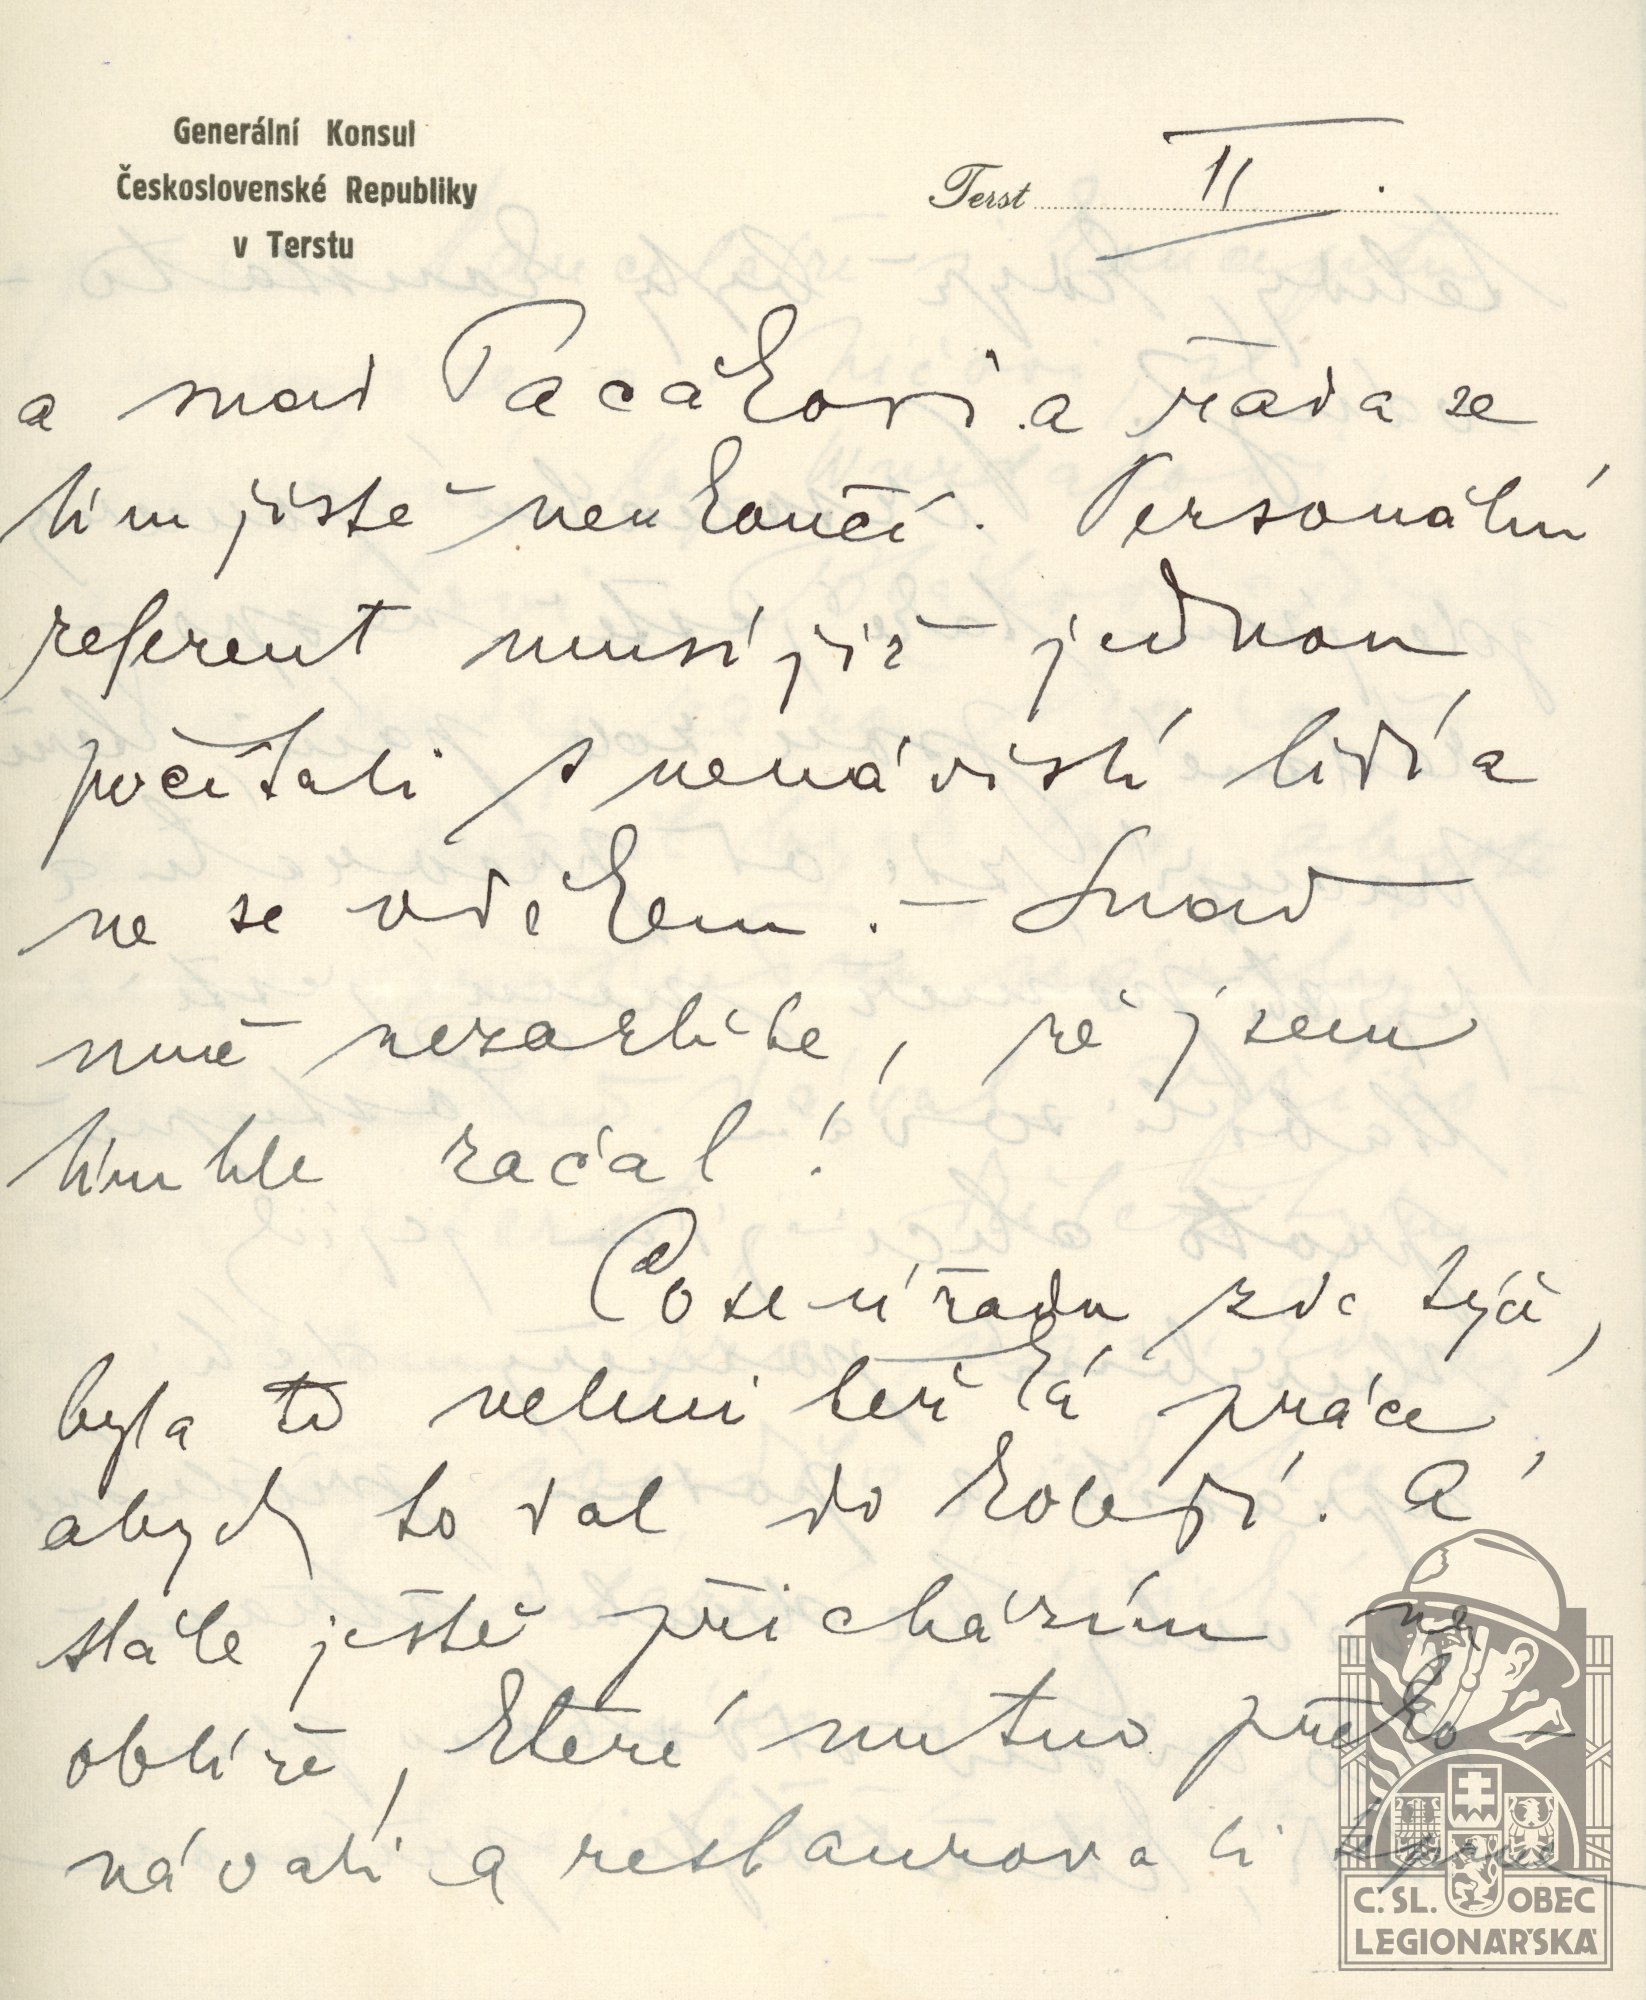 Generální Konsul
Československé Republiky
v Terstu
Terst II.
a snad Pacákovi a řada se
tím jistě neukončí. Personální
referent musí již jednou
počítati s nenávistí lidí a
ne se vděkem. – Snad
mně nezazlíte, že jsem
tímhle začal!
Co se úřadu zde týče,
byla to velmi težká práce,
abych to dal do kolejí. A
stále ještě přicházím na
obtíže, které nutno překo-
návati a restaurovati
C. SL. OBEC
LEGIONÁŘSKÁ